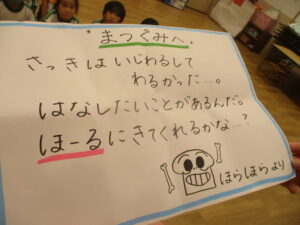 まつぐみへ
さっきはいじわるして
わるかった…。
はなしたいことがあるんだ。
ほーるにきてくれるかな…?
ほらほらより